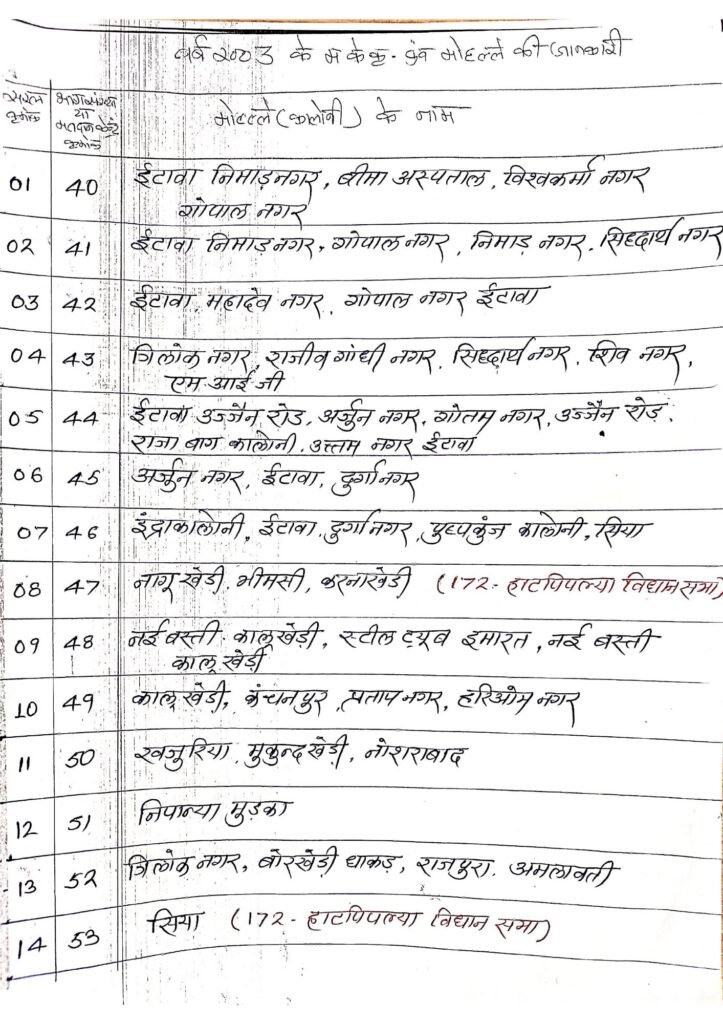 वर्ष 2003 के म के कृ. एवं मोहल्ले की जानकारी
सरल क्रमांक
भाग संख्या या मतदान केन्द्र क्रमांक
मोहल्ले (कालोनी) के नाम
01 40 ईटावा निमाड़नगर, बीमा अस्पताल, विश्वकर्मा नगर
गोपाल नगर
02 41 ईटावा निमाड़नगर, गोपाल नगर, निमाड़ नगर, सिद्दार्थ नगर
03 42 ईटावा, महादेव नगर, गोपाल नगर ईटावा
04 43 त्रिलोक नगर, राजीव गांधी नगर, सिद्दार्थ नगर, शिव नगर,
एम आई जी
05 44 ईटावा उज्जैन रोड, अर्जुन नगर, गोतम नगर, उज्जैन रोड़,
राजा बाग कालोनी, उत्तम नगर ईटावा
06 45 अर्जुन नगर, ईटावा, दुर्गानगर
07 46 इंद्राकालोनी, ईटावा, दुर्गानगर, पुष्पकुंज कालोनी, सिया
08 47 नागूखेडी, भीमसी, करनाखेडी (172- हाटपिपल्या विधानसभा)
09 48 नई बस्ती कालूखेडी, स्टील ट्यूब इमारत, नई बस्ती
कालूखेड़ी
10 49 कालूखेडी, कंचनपुर, प्रताप नगर, हरिओम नगर
11 50 खजुरिया, मुकुन्दखेडी, नोशराबाद
12 51 निपान्या मुड़का
13 52 त्रिलोक नगर, बोरखेडी धाकड़, राजपुरा, अमलावती
14 53 सिया (172- हाटपिपल्या विधान सभा)